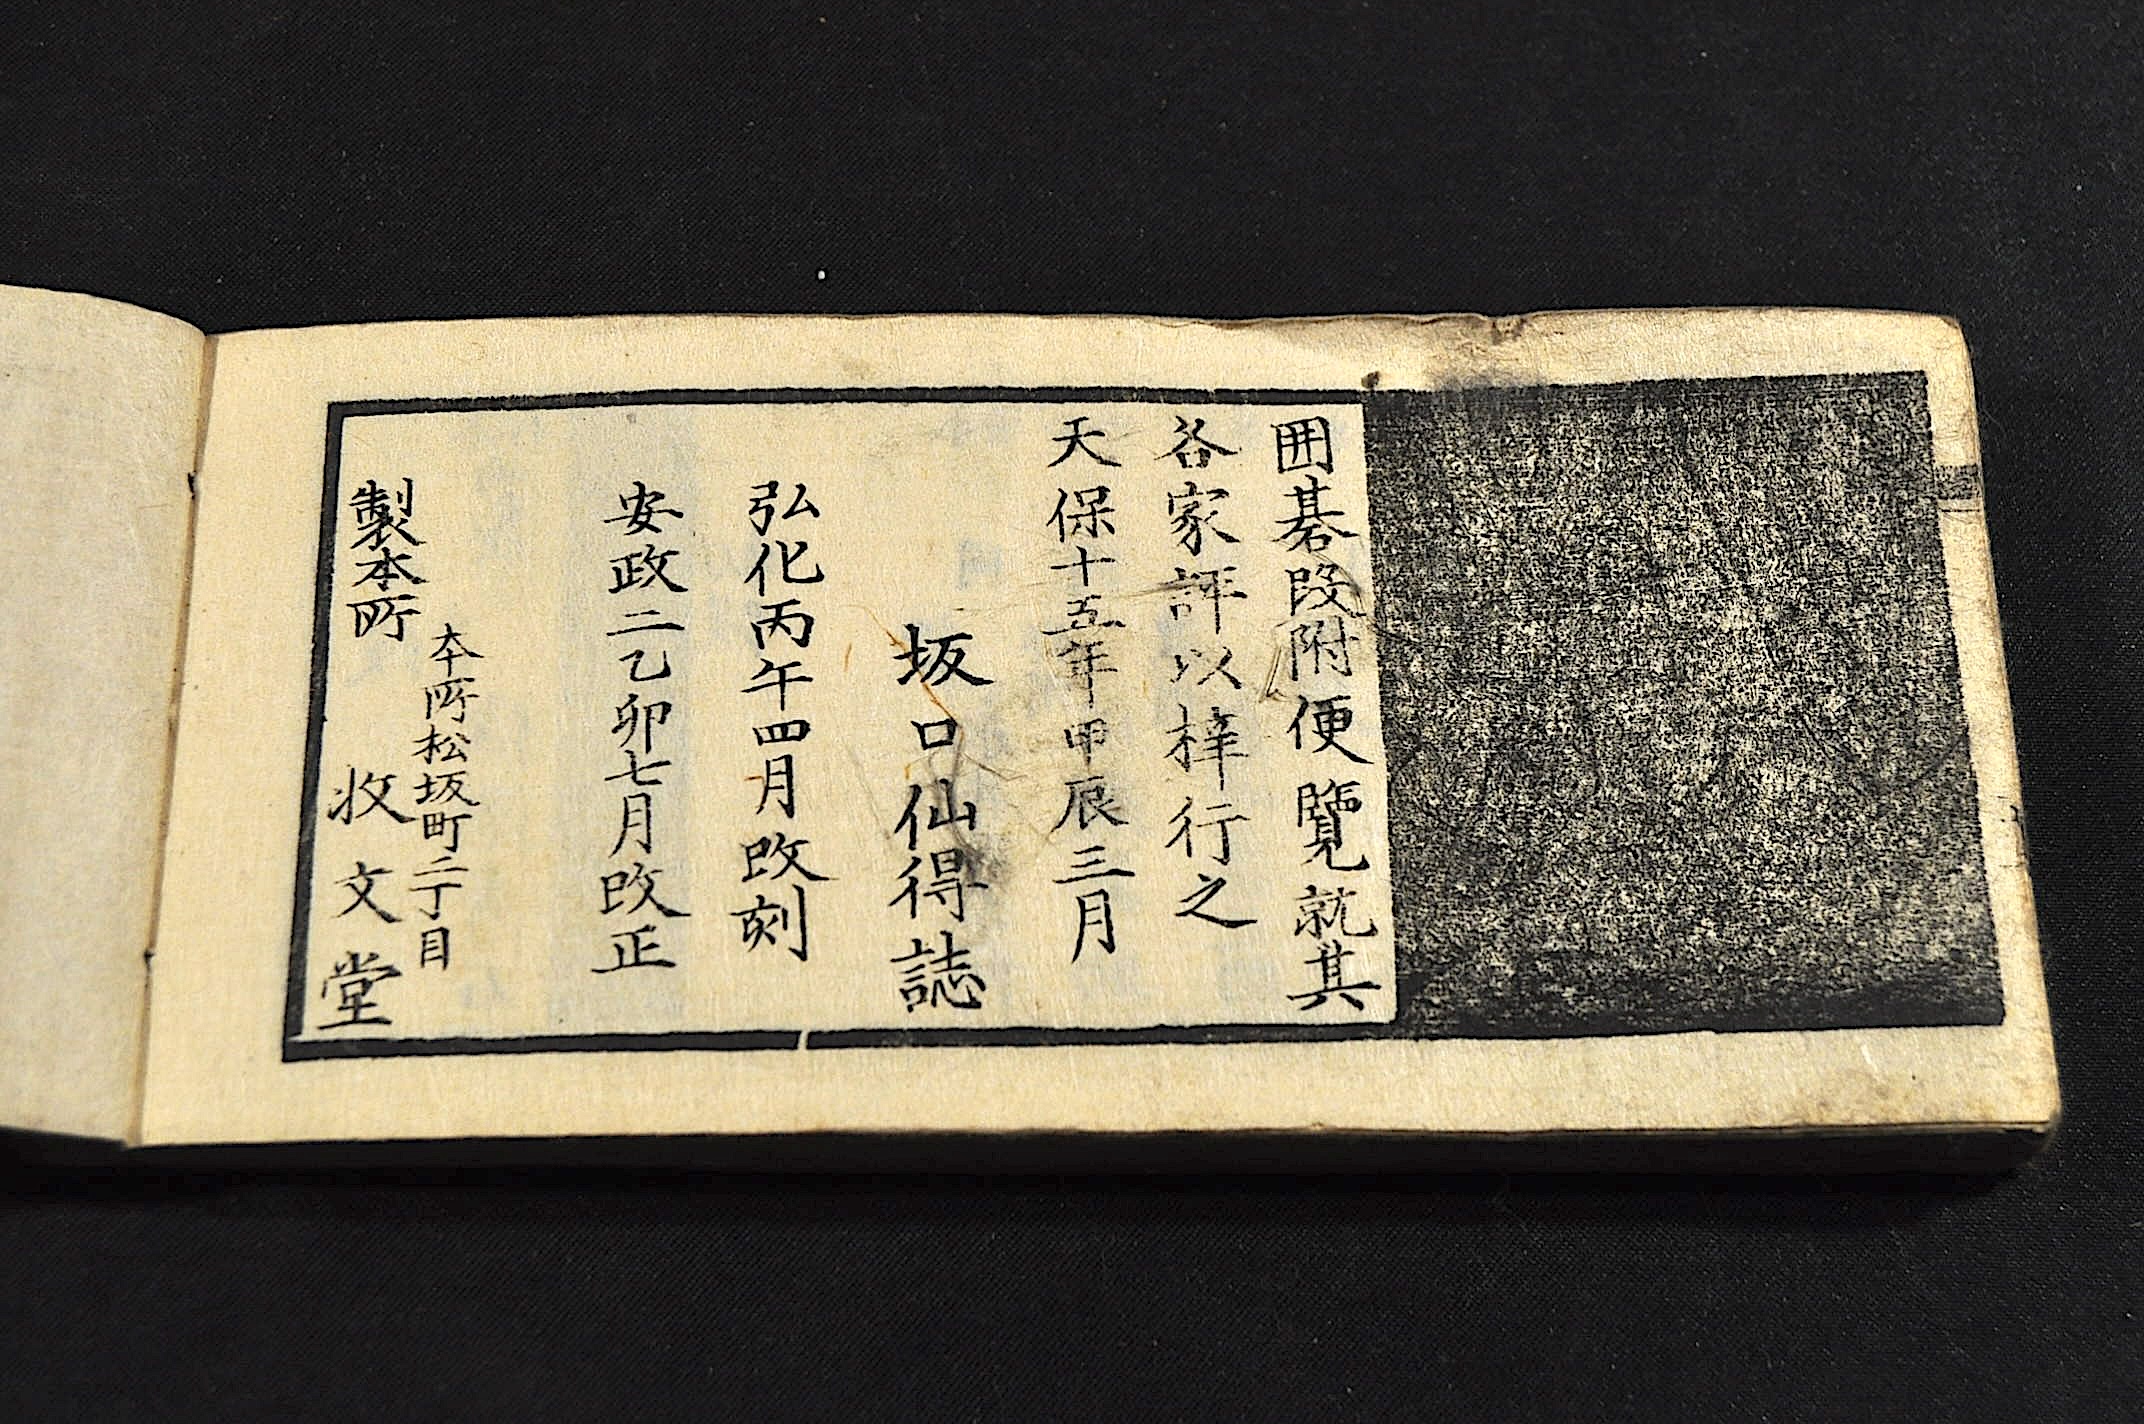 囲碁段附便覽就其
各家評以梓行之
天保十五年甲辰三月
坂口仙得誌
弘化丙午四月改刻
安政二乙卯七月改正
本所松坂町二丁目
製本所　收文堂